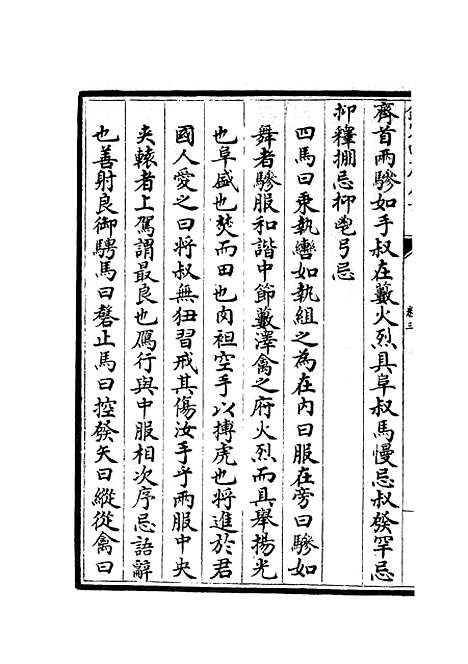 卷三
齊首兩驂如手叔在藪火烈具阜叔馬慢忌叔發罕忌
抑釋掤忌抑鬯弓忌
四馬曰乘執轡如執組之為在内曰服在旁曰驂如
舞者驂服和諧中節藪澤禽之府火烈而具舉揚光
也阜盛也焚而田也肉袒空手以搏虎也將進於君
國人愛之曰將叔無狃習戒其傷汝手乎兩服中央
夾轅者上駕謂最良也鴈行與中服相次序忌語辭
也善射良御騁馬曰磬止馬曰控發矢曰縱從禽曰